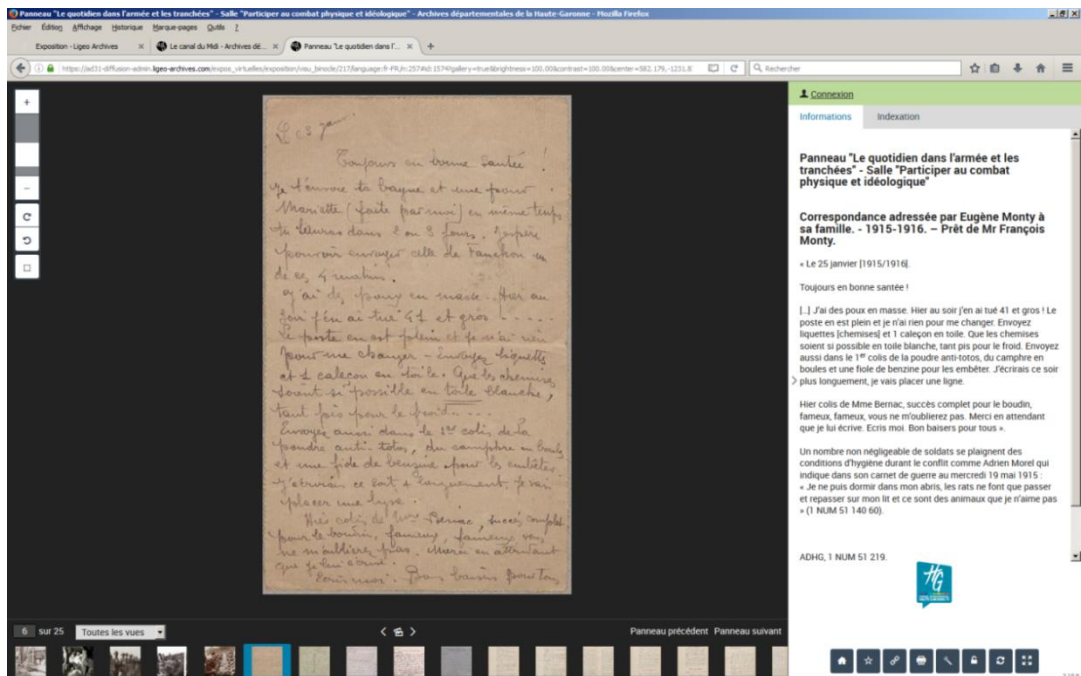 Panneau "Le quotidien dans l'armée et les tranchées" - Salle "Participer au combat physique et idéologique" - Archives départementales de la Haute-Garonne - Mozilla Firefox
Fichier Édition Affichage Historique Marque-pages Outils ?
Exposition - Ligeo Archives × Le canal du Midi - Archives dé... × Panneau "Le quotidien dans l'... × +
https://ad31-diffusion-admin.ligeo-archives.com/expos_virtuelles/exposition/visu_binocle/217/language:fr-FR/n:257#id:1574?gallery=true&brightness=100.00&contrast=100.00&center=582.179,-1231.8
Rechercher
Le 25 janv
Toujours en bonne santée !
Je t'envoie ta bague et une pour
Mariette (faite par moi) en même temps
tu l'auras dans 2 ou 3 jours. J'espère
pouvoir envoyer celle de Fanchon un
de ces 4 matins.
J'ai des poux en masse. Hier au
soir j'en ai tué 41 et gros - - - - -
Le poste en est plein et je n'ai rien
pour me changer - Envoyez liquettes
et 1 caleçon en toile. Que les chemises
soient si possible en toile blanche,
tant pis pour le froid - - - -
Envoyez aussi dans le 1er colis de la
poudre anti-totos, du camphre en boules
et une fiole de benzine pour les embêter.
J'écrirais ce soir + longuement, je vais
placer une ligne.
Hier colis de Mme Bernac, succès complet
pour le boudin, fameux, fameux vous
ne m'oublierez pas. Merci en attendant
que je lui écrive.
Ecris moi. Bons baisers pour tous
Connexion
Informations Indexation
Panneau "Le quotidien dans l'armée et les
tranchées" - Salle "Participer au combat
physique et idéologique"
Correspondance adressée par Eugène Monty à
sa famille. - 1915-1916. – Prêt de Mr François
Monty.
« Le 25 janvier [1915/1916].
Toujours en bonne santée !
[...] J'ai des poux en masse. Hier au soir j'en ai tué 41 et gros ! Le
poste en est plein et je n'ai rien pour me changer. Envoyez
liquettes [chemises] et 1 caleçon en toile. Que les chemises
soient si possible en toile blanche, tant pis pour le froid. Envoyez
aussi dans le 1er colis de la poudre anti-totos, du camphre en
boules et une fiole de benzine pour les embêter. J'écrirais ce soir
plus longuement, je vais placer une ligne.
Hier colis de Mme Bernac, succès complet pour le boudin,
fameux, fameux, vous ne m'oublierez pas. Merci en attendant
que je lui écrive. Ecris moi. Bon baisers pour tous ».
Un nombre non négligeable de soldats se plaignent des
conditions d'hygiène durant le conflit comme Adrien Morel qui
indique dans son carnet de guerre au mercredi 19 mai 1915 :
« Je ne puis dormir dans mon abris, les rats ne font que passer
et repasser sur mon lit et ce sont des animaux que je n'aime pas
» (1 NUM 51 140 60).
ADHG, 1 NUM 51 219.
HG
6 sur 25 Toutes les vues
Panneau précédent Panneau suivant